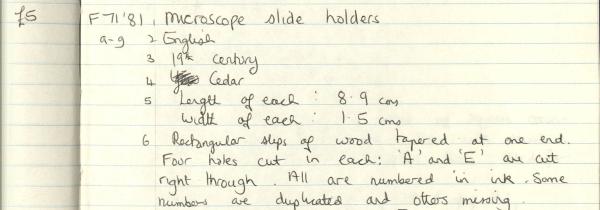 £5 F71'81, Microscope slide holders
a-g 2 English
3 19th century
4 Cedar
5 Length of each: 8.9 cms
Width of each: 1.5 cms
6 Rectangular slips of wood tapered at one end.
Four holes cut in each: 'A' and 'E' are cut
right through. All are numbered in ink. Some
numbers are duplicated and others missing.